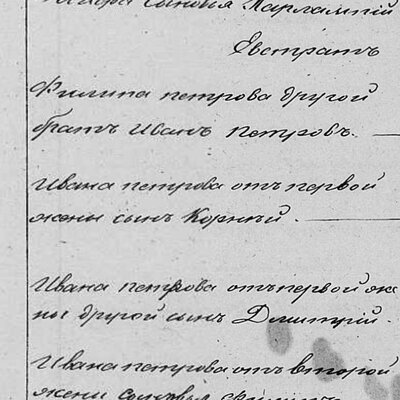 сыновья Парлампій
Евстратъ
Филипа петрова другой
братъ Иванъ Петровъ.
Ивана петрова отъ первой
жены сынъ Корнѣй.
Ивана петрова отъ первой же
ны другой сынъ Дмитрій.
Ивана петрова отъ второй
жены